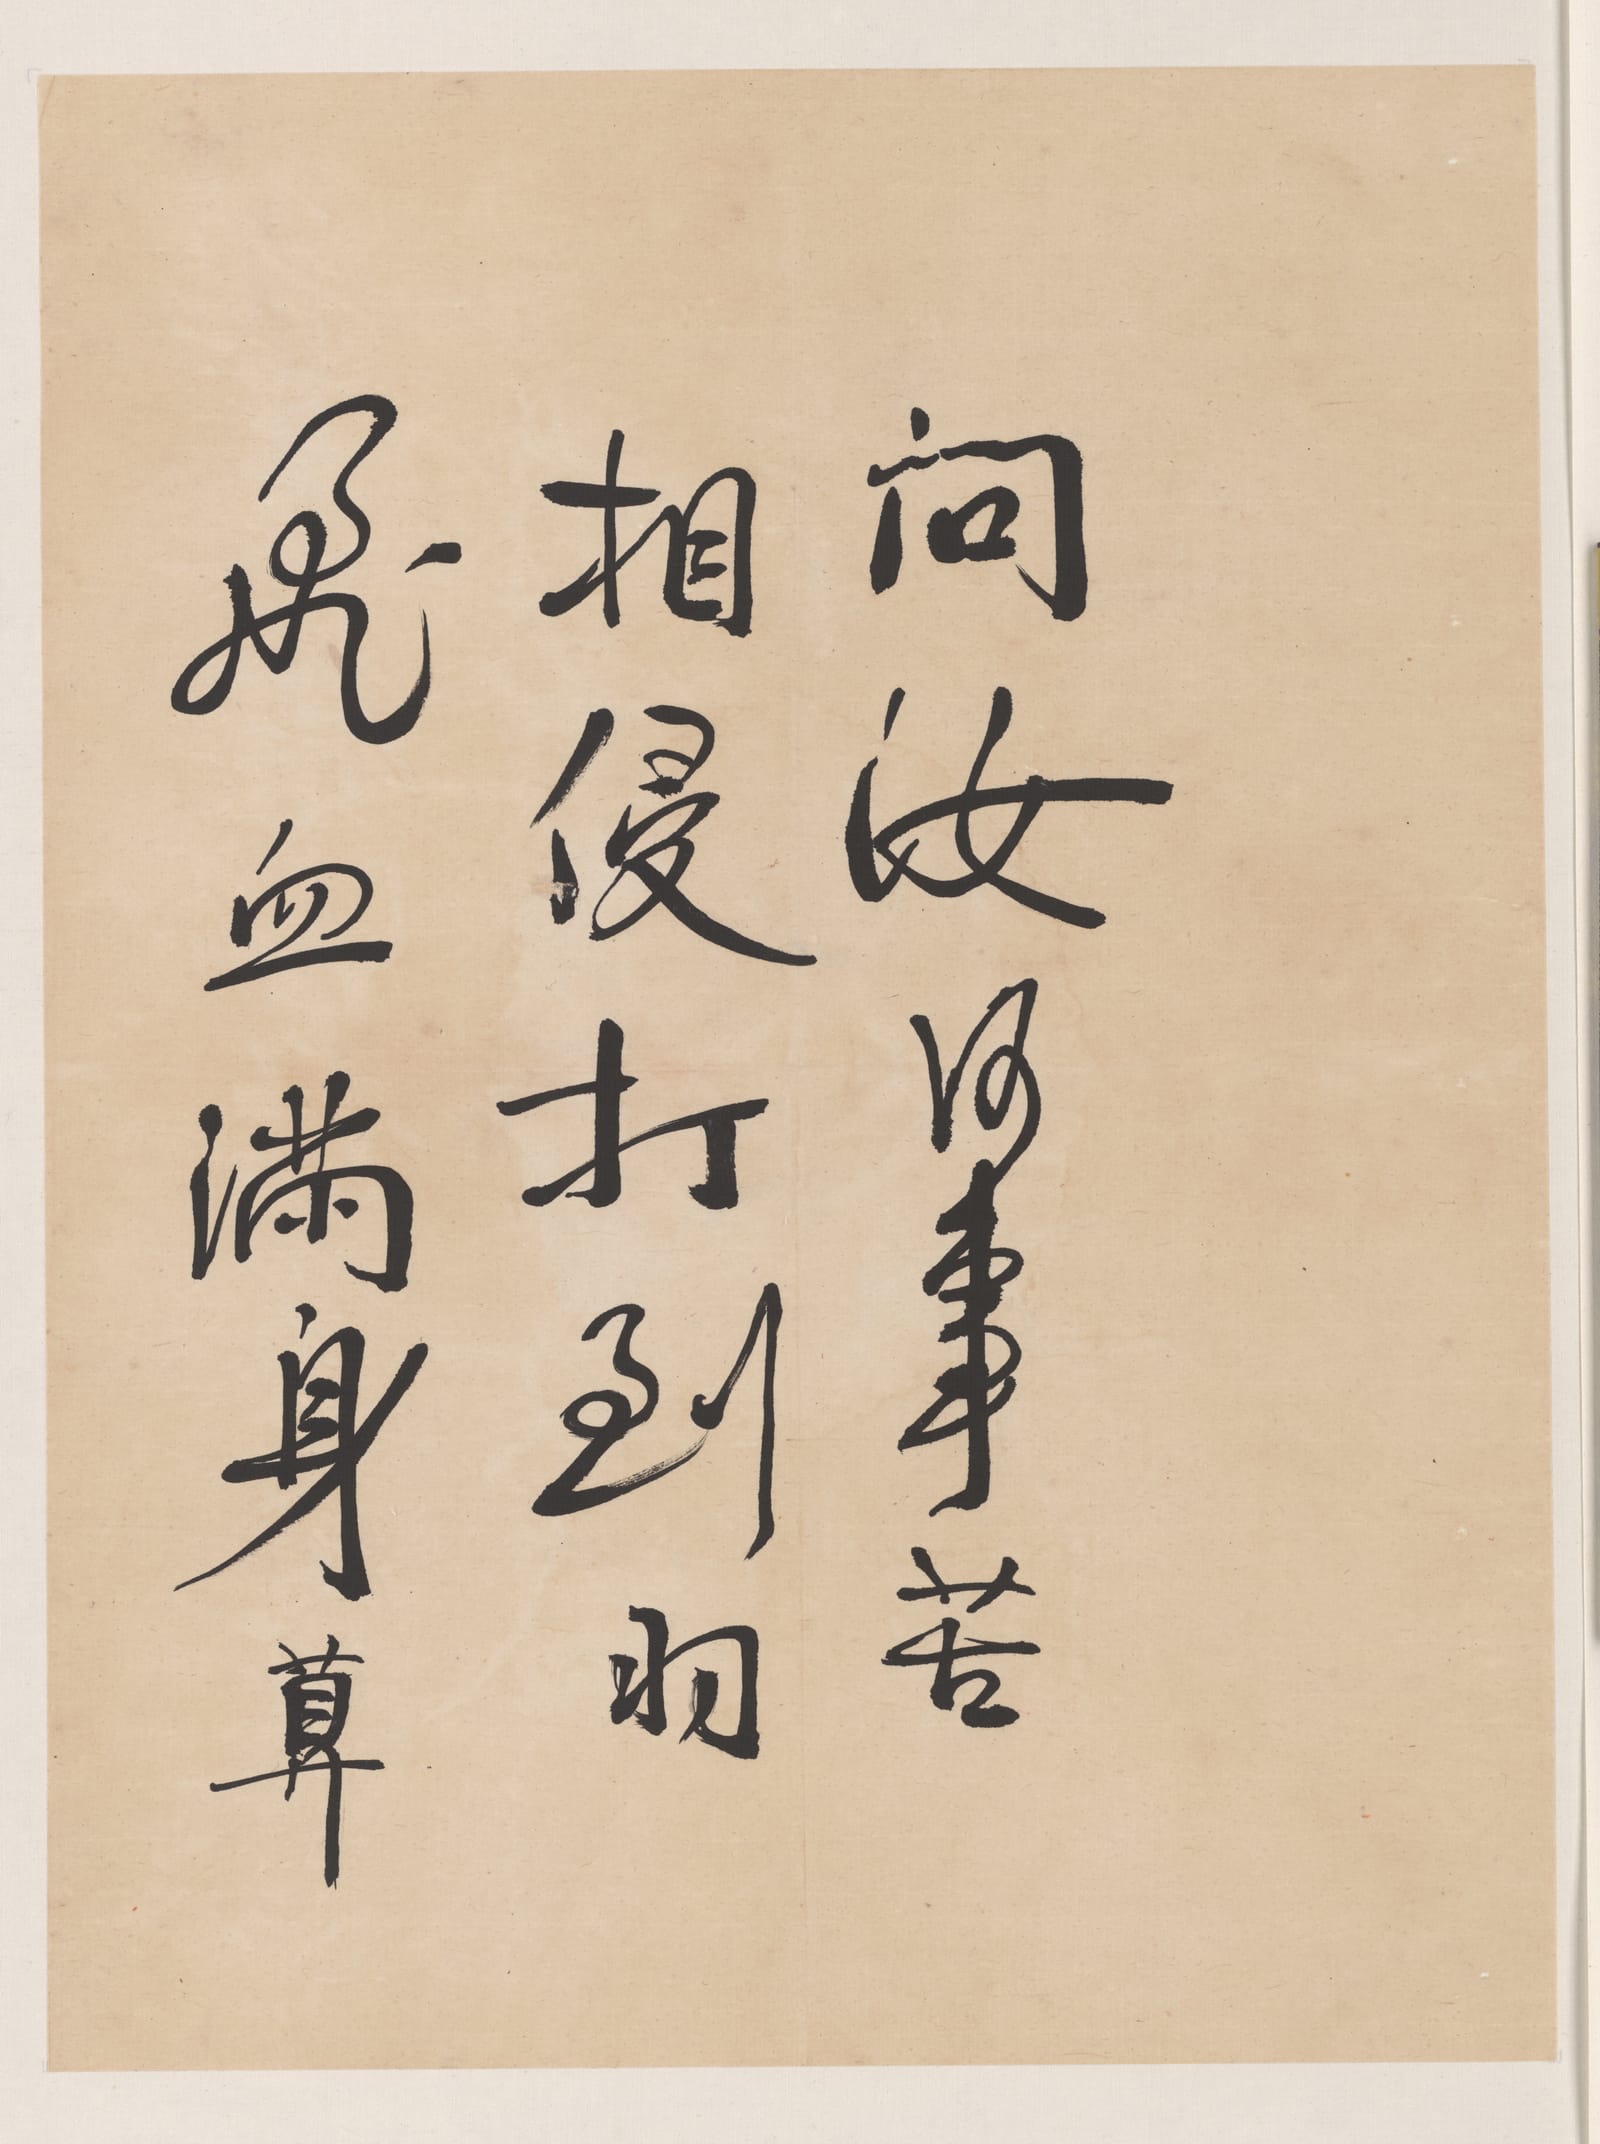 问汝何事苦
相侵打到羽
飛血满身算